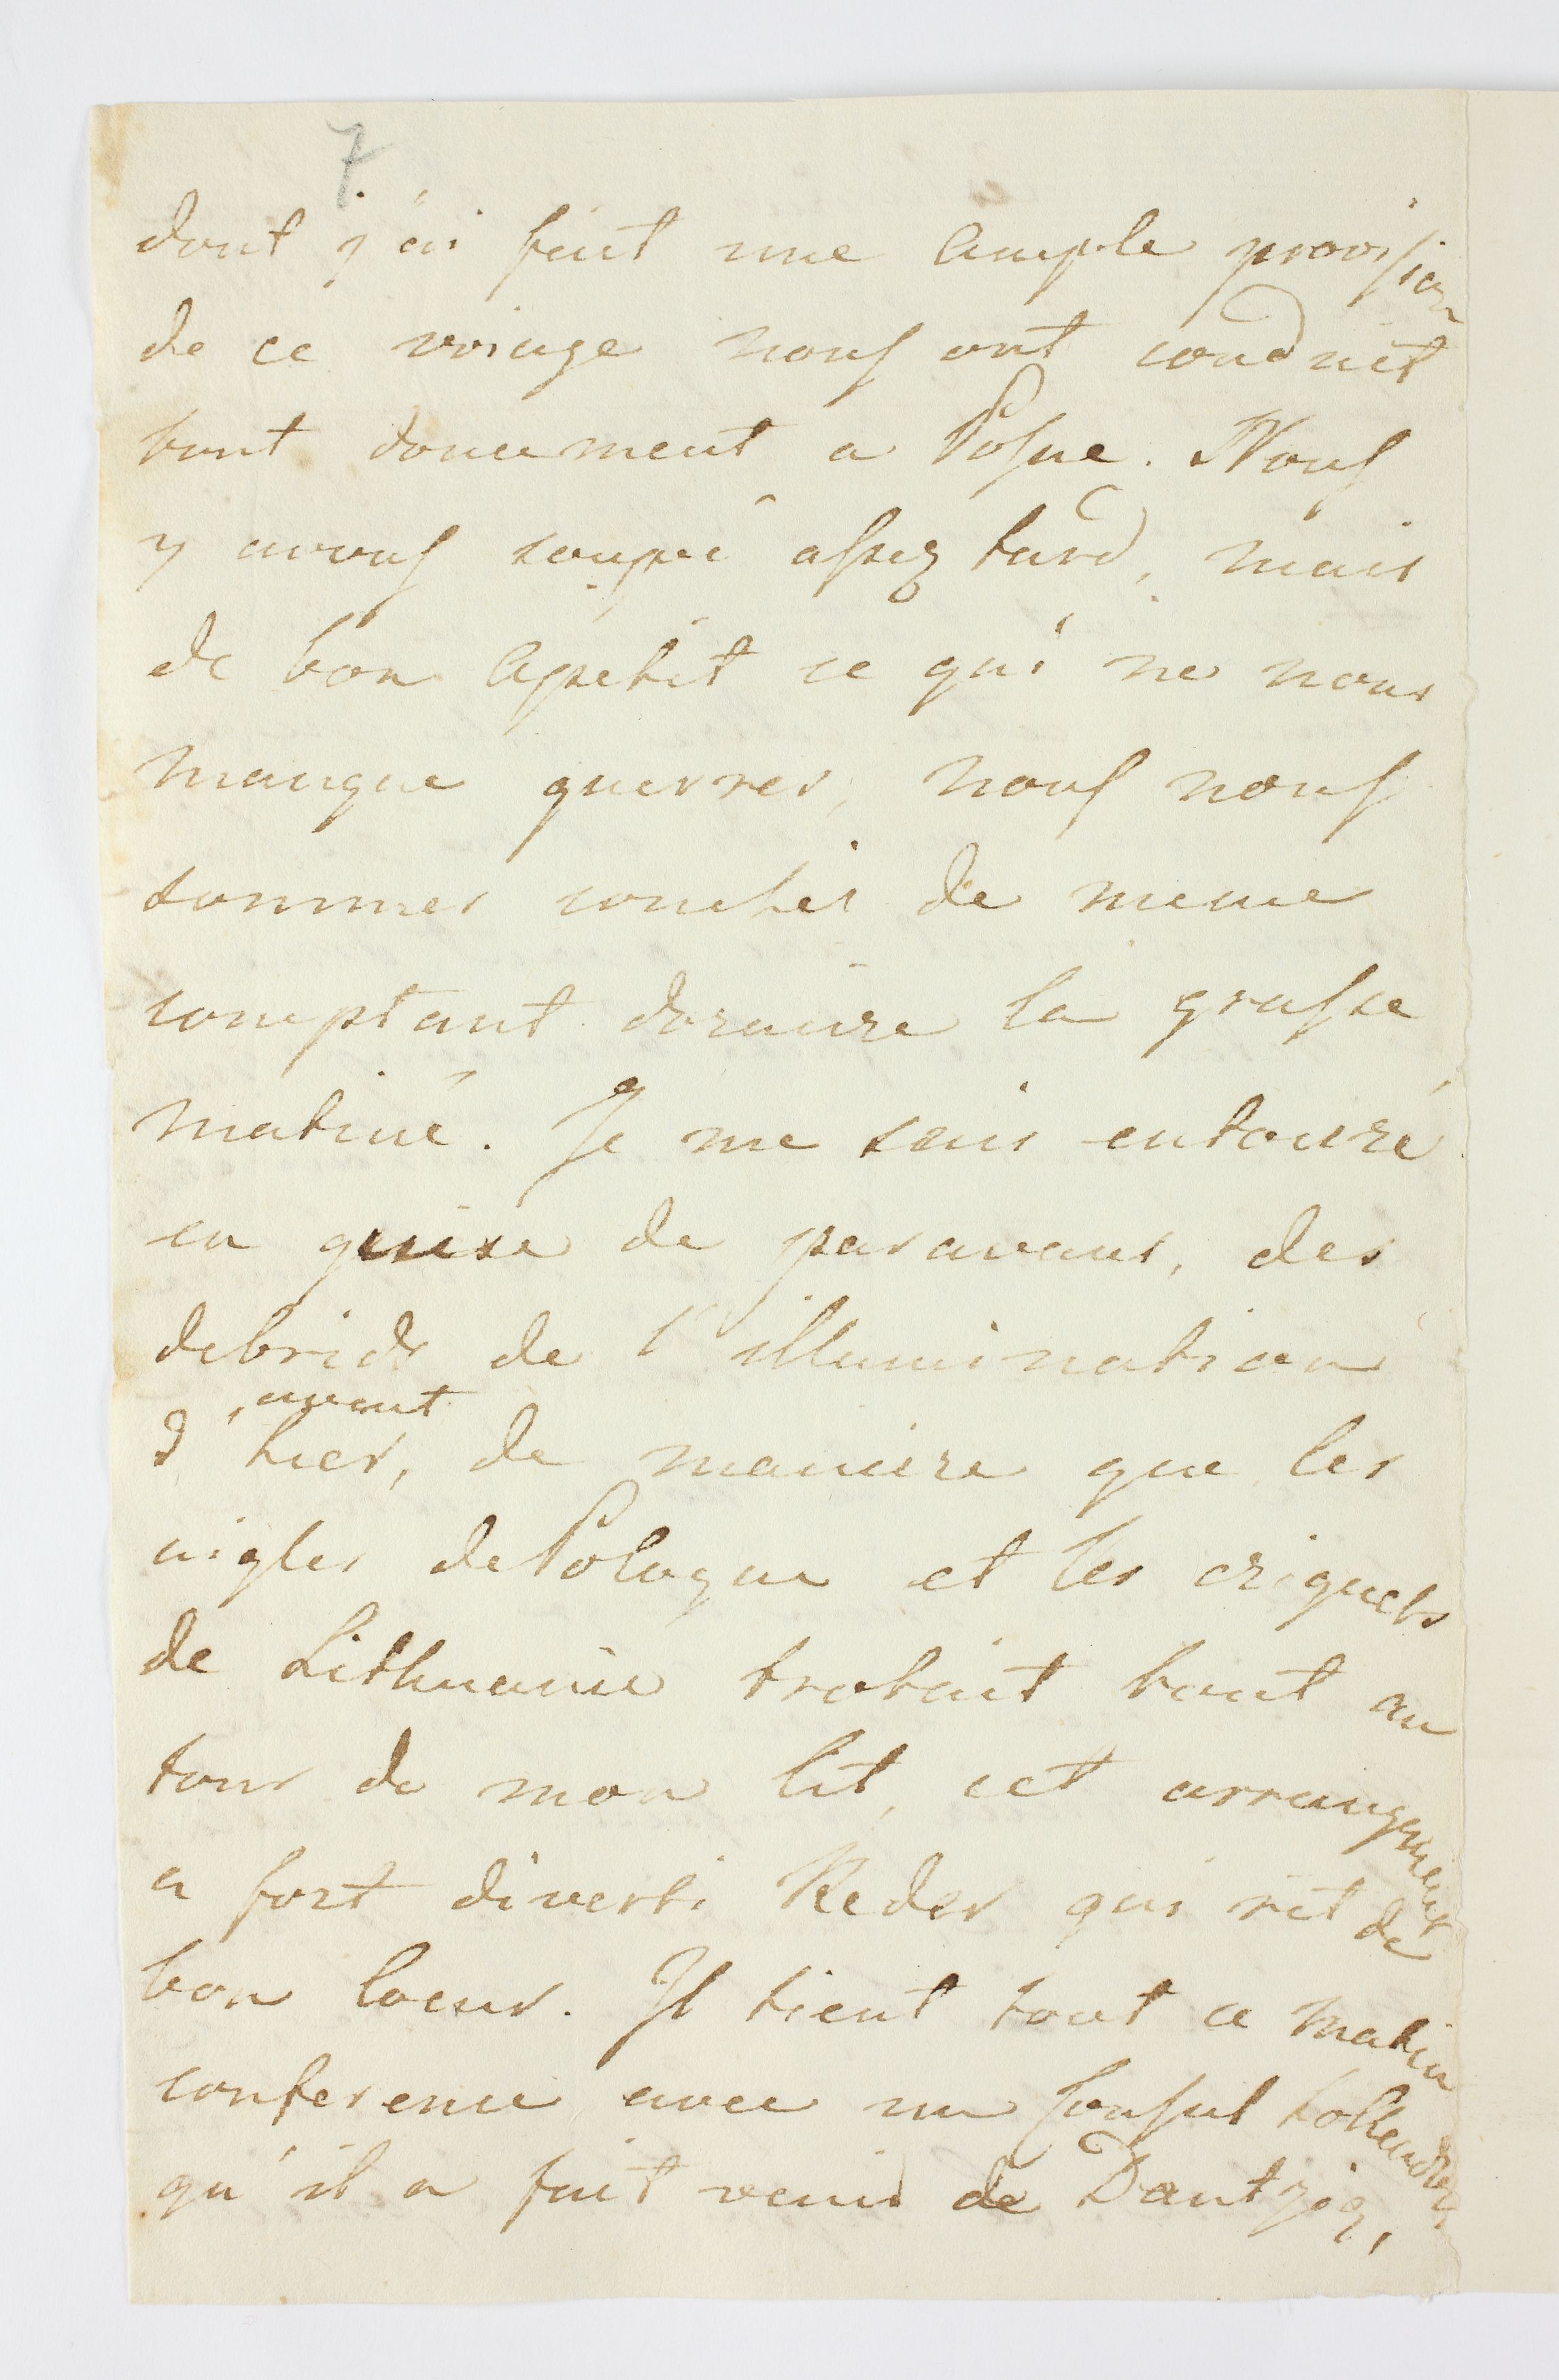 7.
dont j'ai fait une ample provision
de ce voiage nous ont conduit
tout doucement a Posne. Nous
y avons soupé assez tard, mais
de bon Apetit ce qui ne nous
manque guerres, nous nous
sommes couchés de meme
comptant dormire la grasse
matiné. Je me suis entouré
en guise de paravant, des
debrids de l'illumination
avant
d'hier, de maniere que les
aigles de Pologne et les criquets
de Lithuanie trotait tout au
tour de mon lit, cet arrangement
a fort diverti Reder qui rit de
bon Coeur. Il tient tout ce matin
conference avec un Consul hollendois
qu'il a fait venir de Dantzig,